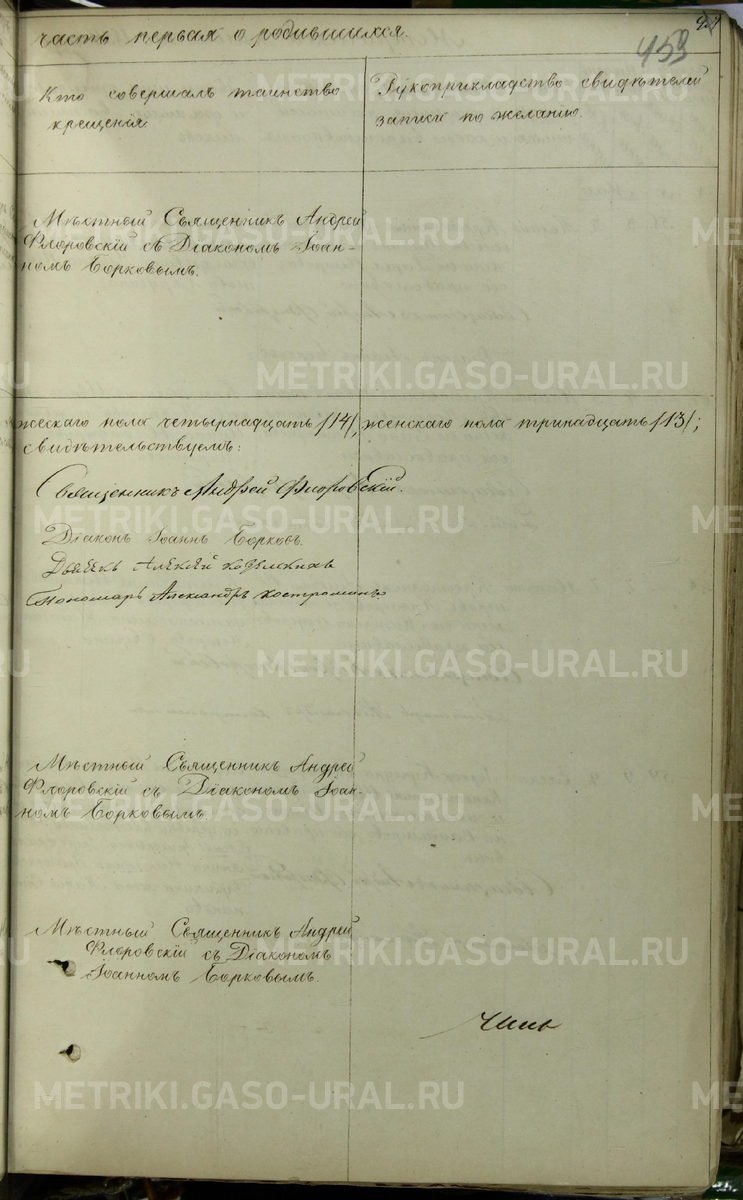 часть первая о родившихся.
459
Кто совершалъ таинство
крещенія.
Рукоприкладство свидѣтелей
записи по желанію.
Мѣстный Священникъ Андрей
Флоровскій съ Діакономъ Іоан-
номъ Борковымъ.
жескаго пола четырнадцать /14/, женскаго пола тринадцать /13/;
свидѣтельствуемъ:
Священникъ Андрей Флоровскій.
Діаконъ Іоаннъ Борковъ.
Дьячекъ Алексѣй
Пономарь Александръ Костроминъ
Мѣстный Священникъ Андрей
Флоровскій съ Діакономъ Іоан-
номъ Борковымъ.
Мѣстный Священникъ Андрей
Флоровскій съ Діакономъ
Іоанномъ Борковымъ.
METRIKI.GASO-URAL.RU